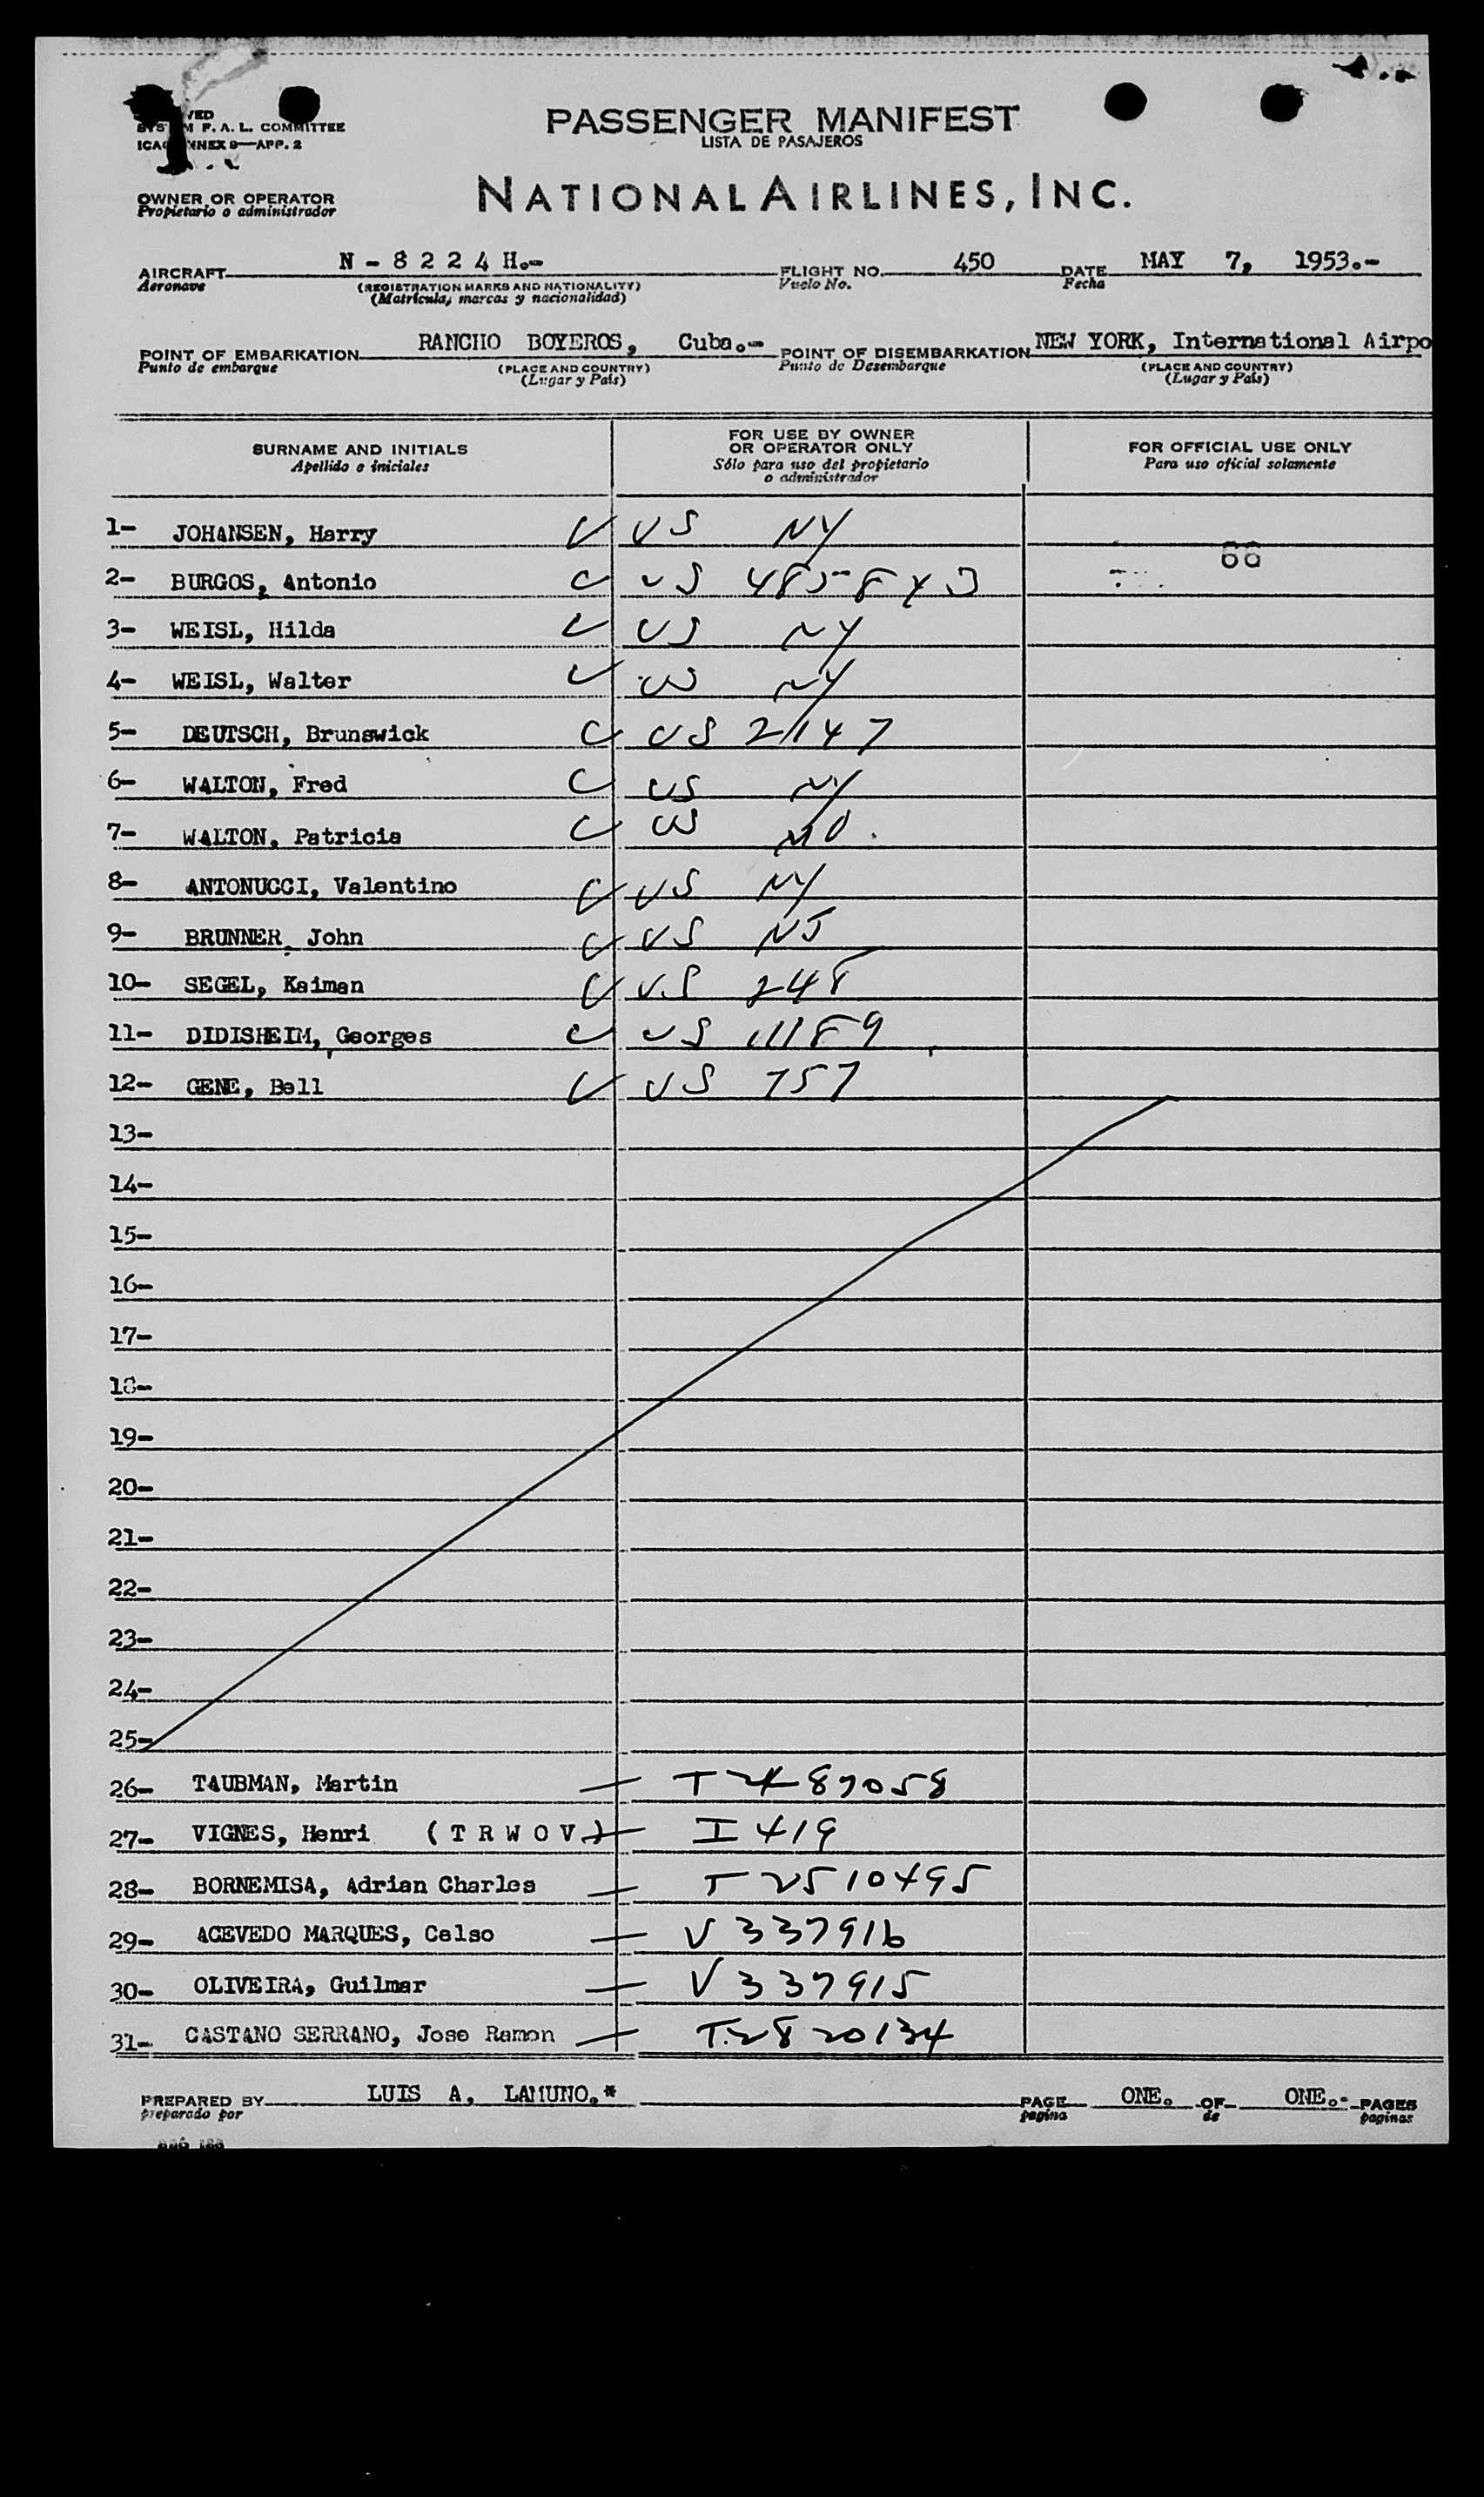 SYSTEM F. A. L. COMMITTEE
ICAO ANNEX 9—APP. 2
PASSENGER MANIFEST
LISTA DE PASAJEROS
OWNER OR OPERATOR
Propietario o administrador
NATIONAL AIRLINES, INC.
AIRCRAFT N - 8 2 2 4 H.- FLIGHT NO. 450 DATE MAY 7, 1953.-
Aeronave (REGISTRATION MARKS AND NATIONALITY) Vuelo No. Fecha
(Matrícula, marcas y nacionalidad)
POINT OF EMBARKATION RANCHO BOYEROS, Cuba.- POINT OF DISEMBARKATION NEW YORK, International Airpo
Punto de embarque (PLACE AND COUNTRY) Punto de Desembarque (PLACE AND COUNTRY)
(Lugar y País) (Lugar y País)
SURNAME AND INITIALS
Apellido e iniciales
FOR USE BY OWNER
OR OPERATOR ONLY
Sólo para uso del propietario
o administrador
FOR OFFICIAL USE ONLY
Para uso oficial solamente
1- JOHANSEN, Harry US NY
66
2- BURGOS, Antonio US
3- WEISL, Hilda US NY
4- WEISL, Walter US NY
5- DEUTSCH, Brunswick US 21147
6- WALTON, Fred US NY
7- WALTON, Patricia US MO.
8- ANTONUCCI, Valentino US NY
9- BRUNNER, John US NJ
10- SEGEL, Kaiman US 248
11- DIDISHEIM, Georges US 11189
12- GENE, Bell US 757
13-
14-
15-
16-
17-
18-
19-
20-
21-
22-
23-
24-
25-
26- TAUBMAN, Martin
27- VIGNES, Henri ( T R W O V ) I 419
28- BORNEMISA, Adrian Charles T 2510495
29- ACEVEDO MARQUES, Celso V 337916
30- OLIVEIRA, Guilmar V 337915
31- CASTANO SERRANO, Jose Ramon T.2820134
PREPARED BY LUIS A, LAMUNO.* PAGE ONE. OF ONE.- PAGES
preparado por pagina de paginas